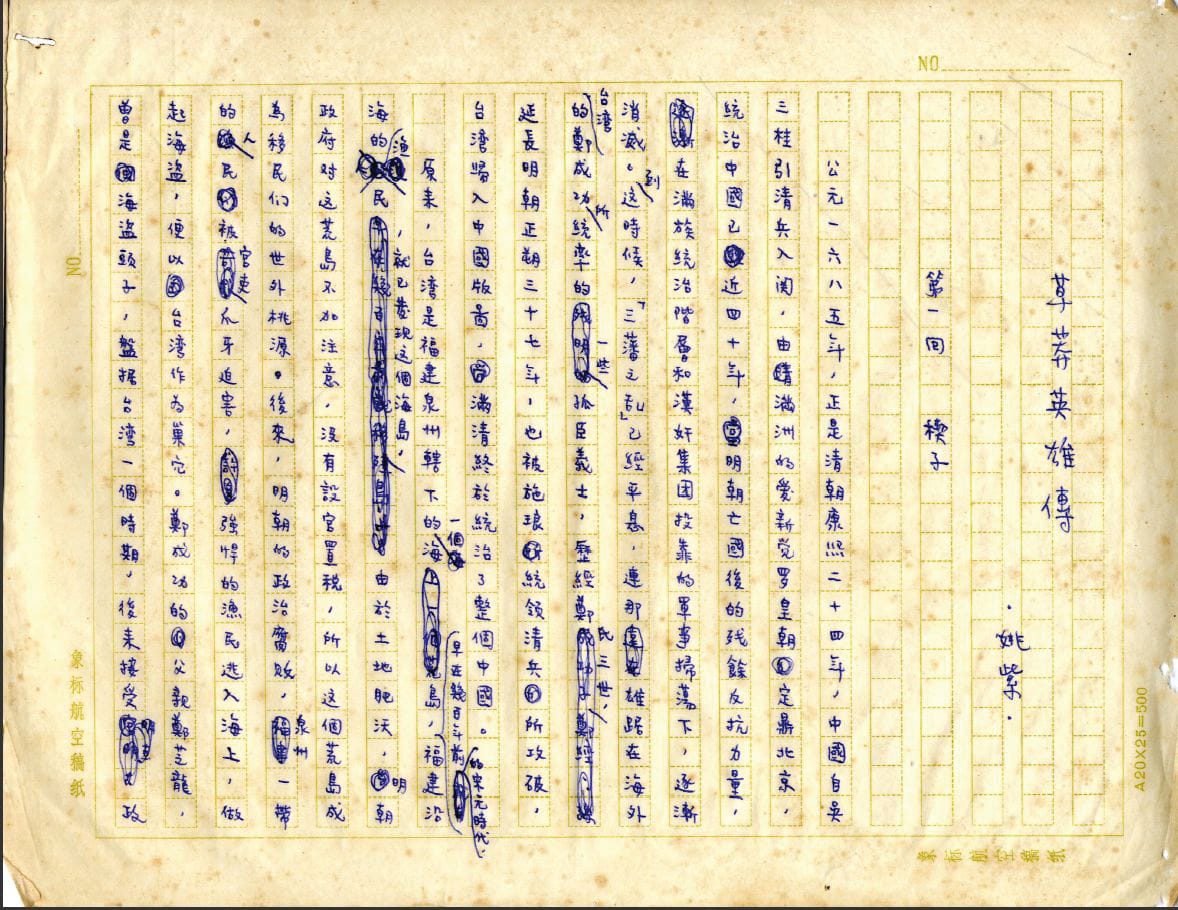 NO
草莽英雄傳
·姚紫·
第一回　楔子
公元一六八五年，正是清朝康熙二十四年，中國自吳
三桂引清兵入関，由滿洲的愛新覚罗皇朝定鼎北京，
統治中國已近四十年，明朝亡國後的残餘反抗力量，
在滿族統治階層和漢奸集团投靠的軍事掃蕩下，逐漸
消滅。到這時候，「三藩之乱」已經平息，連那雄踞在海外
台湾的鄭成功所統率的一些孤臣義士，歷經鄭氏三世，
延長明朝正朔三十七年，也被施琅統領清兵所攻破，
台湾歸入中國版啚，滿清終於統治了整個中國。
原来，台湾是福建泉州轄下的一個海島，早在幾百年前的宋元時代，福建沿
海的漁民，就已發現這個海島，由於土地肥沃，明朝
政府对这荒島不加注意，沒有設官置税，所以這個荒島成
為移民们的世外桃源。後來，明朝的政治腐敗，泉州一帶
的人民被官吏爪牙迫害，強悍的漁民逃入海上，做
起海盗，便以台湾作為巢穴。鄭成功的父親鄭芝龍，
曾是海盗頭子，盤据台湾一個時期，後来接受明政
NO
象标航空稿纸
A20X25=500
象标航空稿纸